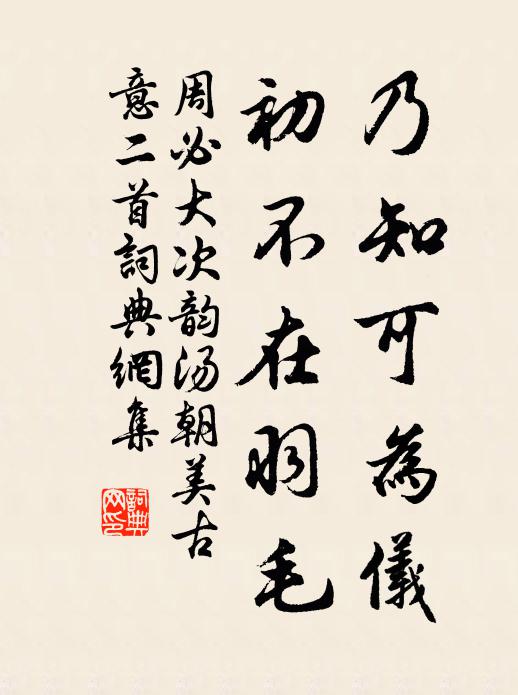 乃知可為儀
初不在羽毛
周必大次韵汤朝美古
意二首詞典網集
詞典网印